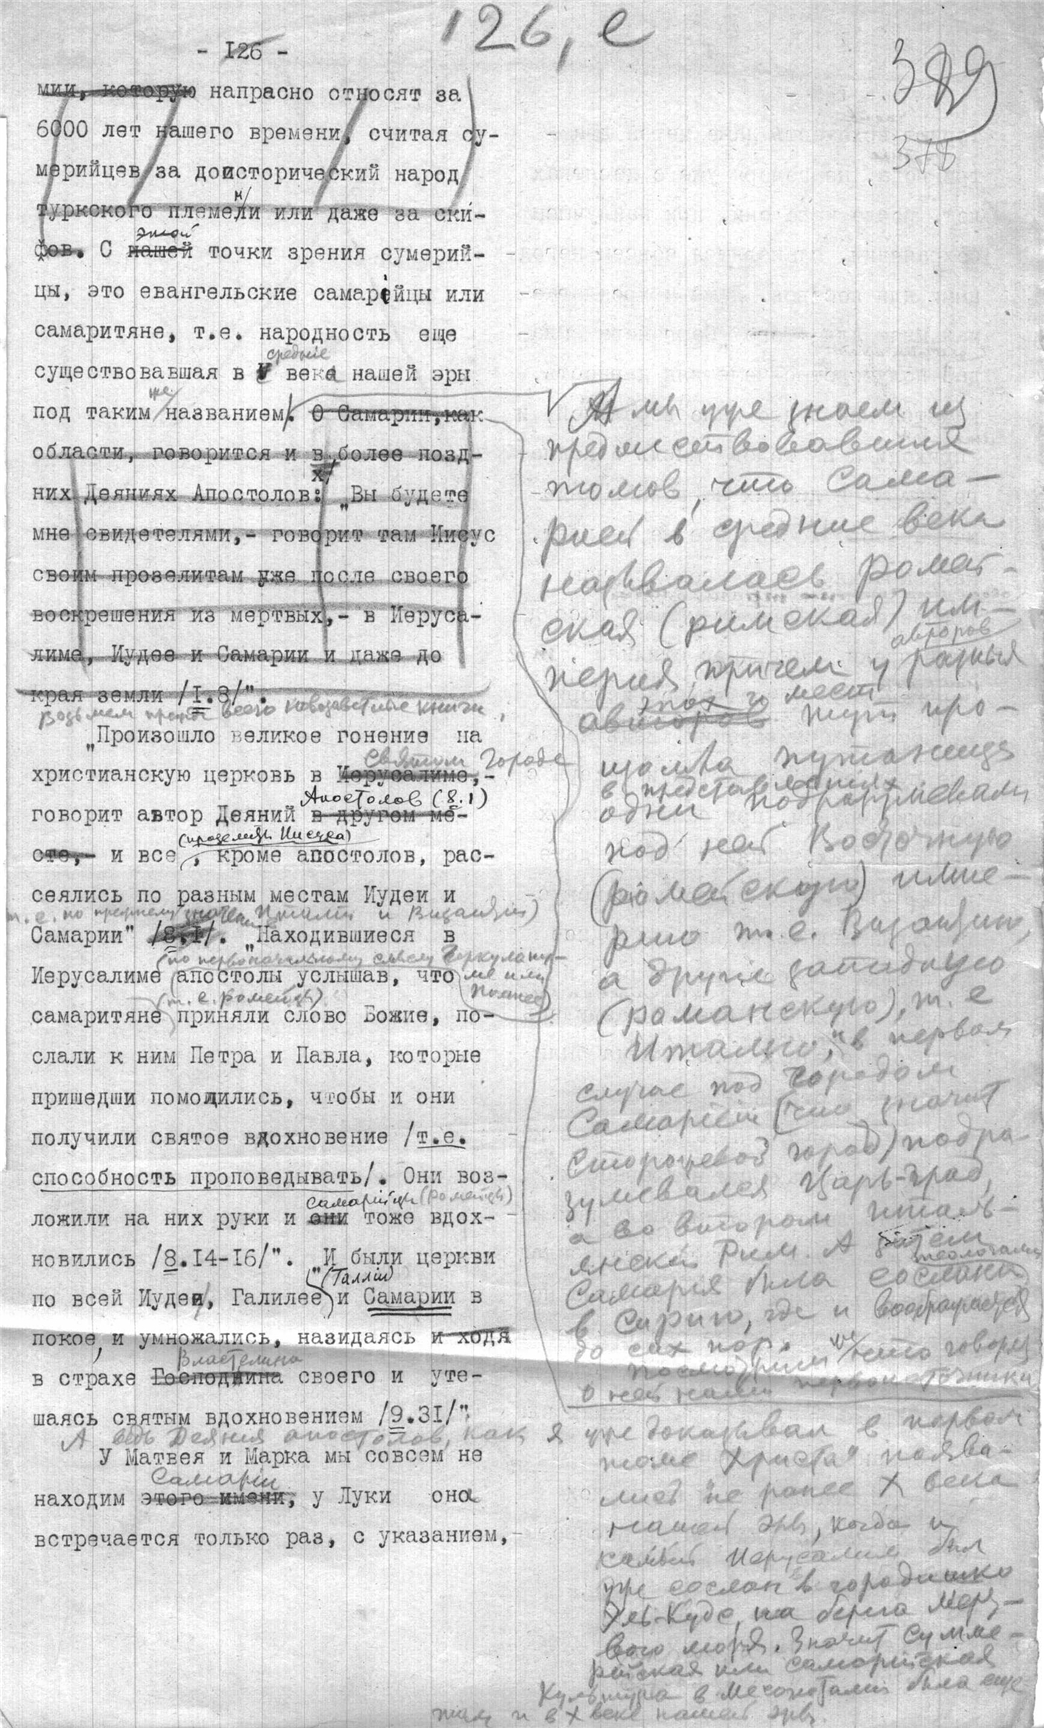 126, е
- 126 -
389
мии, которую напрасно относят за
6000 лет нашего времени, считая су-
мерийцев за доисторический народ
туркского племени или даже за ски-
этой
фов. С нашей точки зрения сумерий-
цы, это евангельские самарийцы или
самаритяне, т.е. народность еще
средние
существовавшая в V века нашей эры
же
под таким названием. О Самарии, как
области, говорится и в более позд-
них Деяниях Апостолов: „Вы будете
мне свидетелями,- говорит там Иисус
своим прозелитам уже после своего
воскрешения из мертвых,- в Иеруса-
лиме, Иудее и Самарии и даже до
края земли /I.8/".
Возьмем прежде всего новозаветные книги,
„Произошло великое гонение на
Святом Городе
христианскую церковь в Иерусалиме,-
Апостолов (8.1)
говорит автор Деяний в другом ме-
(прозелиты Иисуса)
сте,- и все, кроме апостолов, рас-
сеялись по разным местам Иудеи и
т.е. по прежнему значению Италии и Византии)
Самарии" /8.1/. „Находившиеся в
(по первоначальному смыслу Геркулану-
ме или Помпее)
Иерусалиме апостолы услышав, что
(т.е. ромейцы)
самаритяне приняли слово Божие, по-
слали к ним Петра и Павла, которые
пришедши помолились, чтобы и они
получили святое вдохновение /т.е.
способность проповедывать/. Они воз-
самарийцы (ромейцы)
ложили на них руки и они тоже вдох-
новились /8.14-16/". „И были церкви
(Галлии)
по всей Иудеи, Галилее и Самарии в
покое, и умножались, назидаясь и ходя
Властелина
в страхе Господина своего и уте-
шаясь святым вдохновением /9.31/".
А ведь Деяния апостолов, как я уже доказывал в первом
У Матвея и Марка мы совсем не
Самарии
находим этого имени, у Луки она
встречается только раз, с указанием,
А мы уже знаем из
предшествовавших
томов, что Сама-
рией в средние века
называлась ромей-
ская (римская) им-
авторов
перия причем у разных
эпох и мест
авторов тут про-
изошла путаница
в представлениях
одни подразумевали
под ней Восточную
(ромейскую) импе-
рию т.е. Византию,
а другие западную
(романскую), т.е
Италию, в первом
случае под городом
Самарией (что значит
Сторожевой город) подра-
зумевался Царь-град,
а во втором италь-
янский Рим. А затем
теологами
Самария была сослана
в Сирию, где и воображается
до сих пор.
Посмотрим же, что говорят
о ней наши первоисточники
томе „Христа" появи-
лись не ранее X века
нашей эры, когда и
самый Иерусалим был
уже сослан в городишко
Эль-Кудс, на берега Мерт-
вого моря. Значит сумме-
рийская или самарийская
культура в Месопотамии была еще
и в X веке нашей эры.